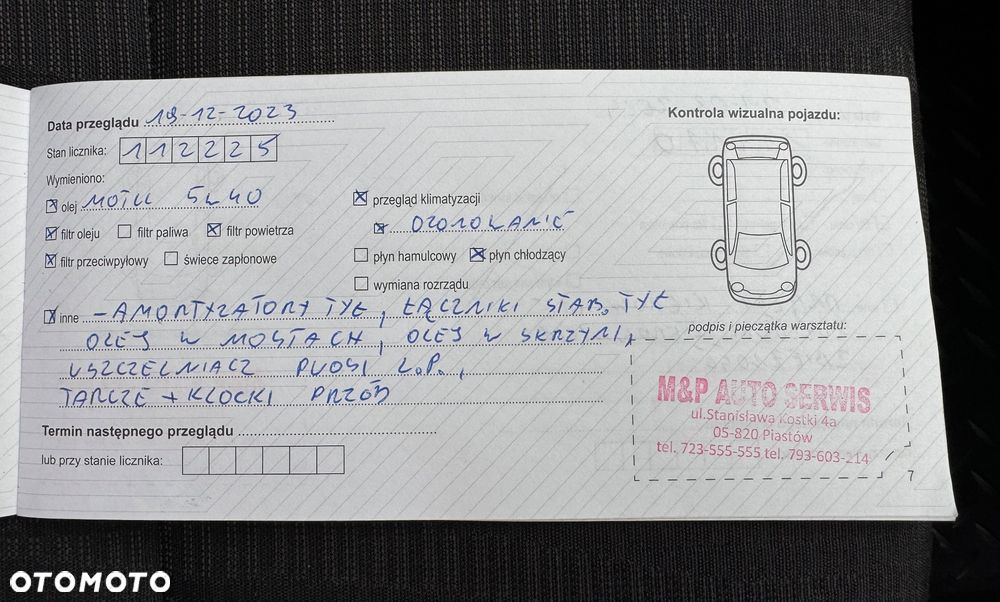 Data przeglądu 19-12-2023
Stan licznika: 112225
Wymieniono:
olej MOTUL 5W40
filtr oleju filtr paliwa filtr powietrza
filtr przeciwpyłowy świece zapłonowe
przegląd klimatyzacji
OZONOWANIE
płyn hamulcowy płyn chłodzący
wymiana rozrządu
inne - AMORTYZATORY TYŁ, ŁĄCZNIKI STAB. TYŁ
OLEJ W MOSTACH, OLEJ W SKRZYNI,
USZCZELNIACZ PÓŁOSI L.P.,
TARCZE + KLOCKI PRZÓD
Termin następnego przeglądu
lub przy stanie licznika:
Kontrola wizualna pojazdu:
podpis i pieczątka warsztatu:
M&P AUTO SERWIS
ul.Stanisława Kostki 4a
05-820 Piastów
tel. 723-555-555 tel. 793-603-214
7
OTOMOTO